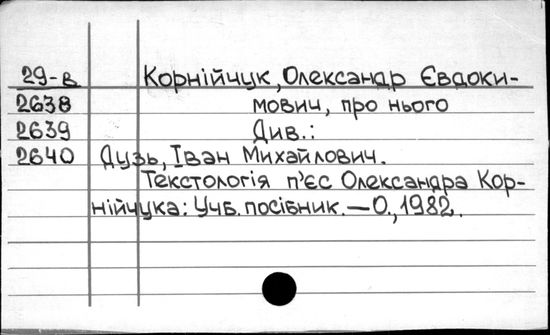 29-в Корнійчук, Олександр Євдоки-
2638 мович, про нього
2639 Див.:
2640 Дузь, Іван Михайлович.
Текстологія п'єс Олександра Кор-
нійчука: Учб. посібник. — О., 1982.